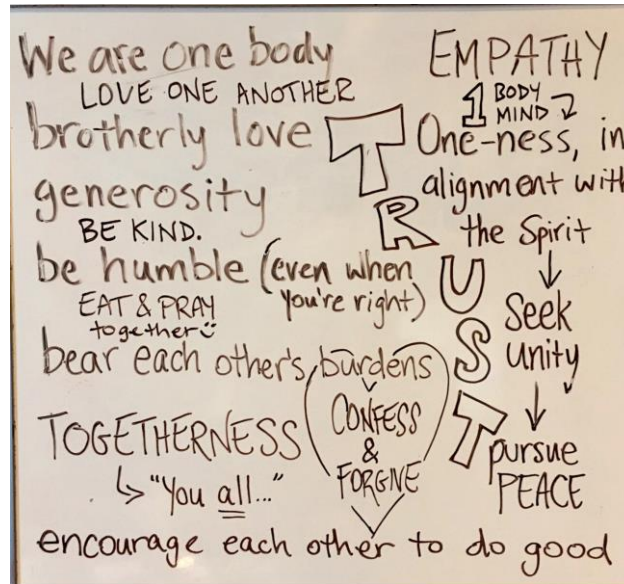 We are one body
LOVE ONE ANOTHER
brotherly love
generosity
BE KIND.
be humble (even when
you're right)
EAT & PRAY
together
bear each other's burdens
CONFESS
&
FORGIVE
TOGETHERNESS
"You all..."
encourage each other to do good
TRUST
EMPATHY
1 BODY
MIND
One-ness, in
alignment with
the Spirit
Seek
Unity
pursue
PEACE